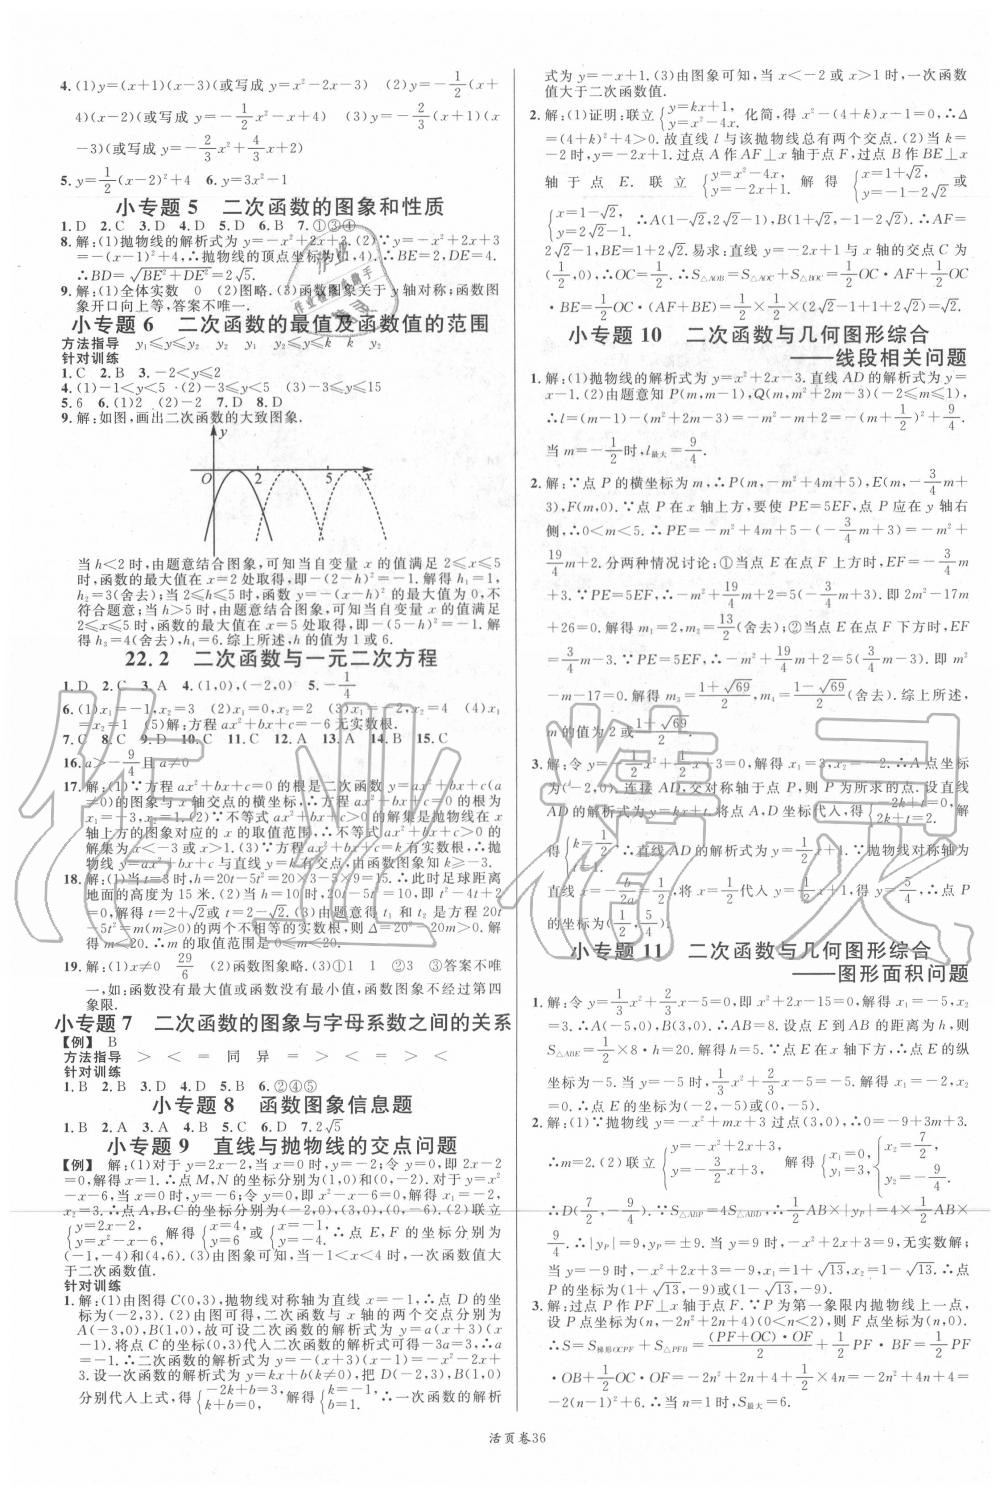 4. (1)y=(x+1)(x-3)(或写成 y=x²-2x-3) (2)y=-1/2(x+
4)(x-2)(或写成 y=-1/2x²-x+4) (3)y=-2/3(x+1)(x
-3)(或写成 y=-2/3x²+4/3x+2)
5. y=1/2(x-2)²+4 6. y=3x²-1
小专题 5 二次函数的图象和性质
1. D 2. C 3. D 4. D 5. D 6. B 7. ①③④
8. 解:(1)抛物线的解析式为 y=-x²+2x+3. (2)∵y=-x²+2x+3
=-(x-1)²+4,∴抛物线的顶点坐标为(1,4). ∴BE=2,DE=4.
∴BD=√BE²+DE²=2√5.
9. 解:(1)全体实数 0 (2)图略. (3)函数图象关于 y 轴对称;函数图
象开口向上等,答案不唯一.
小专题 6 二次函数的最值及函数值的范围
方法指导 y₁≤y≤y₂ y₂ y₁ y₂≤y≤k k y₂
针对训练
1. C 2. B 3. -2<y≤2
4. (1)-1<y<5 (2)-3≤y<5 (3)-1≤y≤15
5. 6 6. (1)2 (2)-2 7. D 8. D
9. 解:如图,画出二次函数的大致图象.
y
O 2 5 x
当 h<2 时,由题意结合图象,可知当自变量 x 的值满足 2≤x≤5
时,函数的最大值在 x=2 处取得,即-(2-h)²=-1. 解得 h₁=1,
h₂=3(舍去);当 2≤h≤5 时,由图象可知,函数的最大值为 0,不
符合题意;当 h>5 时,由题意结合图象,可知当自变量 x 的值满足
2≤x≤5 时,函数的最大值在 x=5 处取得,即-(5-h)²=-1. 解
得 h₃=4(舍去),h₄=6. 综上所述,h 的值为 1 或 6.
22.2 二次函数与一元二次方程
1. D 2. C 3. A 4. (1,0),(-2,0) 5. -1/4
6. (1)x₁=-1,x₂=3 (2)x₁=0,x₂=2 (3)x₁=-2,x₂=4 (4)x₁
=x₂=1 (5)解:方程 ax²+bx+c=-6 无实数根.
7. C 8. C 9. D 10. C 11. C 12. A 13. A 14. B 15. C
16. a>-9/4且 a≠0
17. 解:(1)∵方程 ax²+bx+c=0 的根是二次函数 y=ax²+bx+c(a
≠0)的图象与 x 轴交点的横坐标,∴方程 ax²+bx+c=0 的根为
x₁=-3,x₂=1. (2)∵不等式 ax²+bx+c>0 的解集是抛物线在 x
轴上方的图象对应的 x 的取值范围,∴不等式 ax²+bx+c>0 的
解集为 x<-3 或 x>1. (3)∵方程 ax²+bx+c=k 有实数根,∴抛
物线 y=ax²+bx+c 与直线 y=k 有交点,由函数图象知 k≥-3.
18. 解:(1)当 t=3 时,h=20t-5t²=20×3-5×9=15. ∴此时足球距离
地面的高度为 15 米. (2)当 h=10 时,20t-5t²=10,即 t²-4t+2
=0,解得 t=2+√2或 t=2-√2. (3)由题意得 t₁ 和 t₂ 是方程 20t
-5t²=m(m≥0)的两个不相等的实数根,则 Δ=20²-20m>0. 解
得 m<20. ∴m 的取值范围是 0≤m<20.
19. 解:(1)x≠0 29/6 (2)函数图象略. (3)①1 1 ②3 ③答案不唯
一,如:函数没有最大值或函数没有最小值,函数图象不经过第四
象限.
小专题 7 二次函数的图象与字母系数之间的关系
【例】 B
方法指导 > < = 同 异 = > < = > <
针对训练
1. B 2. B 3. D 4. D 5. B 6. ②④⑤
小专题 8 函数图象信息题
1. B 2. A 3. A 4. B 5. D 6. D 7. 2√5
小专题 9 直线与抛物线的交点问题
【例】 解:(1)对于 y=2x-2,当 x=0 时,y=-2;令 y=0,即 2x-2
=0,解得 x=1. ∴点 M,N 的坐标分别为(1,0),(0,-2). 对于 y=x²
-x-6,当 x=0 时,y=-6;令 y=0,即 x²-x-6=0,解得 x₁=-2,
x₂=3. ∴点 A,B,C 的坐标分别为(-2,0),(3,0),(0,-6). (2)联立
{y=2x-2, y=x²-x-6, 解得{x=4, y=6 或{x=-1, y=-4. ∴点 E,F 的坐标分别为
(-1,-4),(4,6). (3)由图象可知,当-1<x<4 时,一次函数值大
于二次函数值.
针对训练
1. 解:(1)由图得 C(0,3),抛物线对称轴为直线 x=-1,∴点 D 的坐
标为(-2,3). (2)由图可得,二次函数与 x 轴的两个交点分别为
A(-3,0),B(1,0),故可设二次函数的解析式为 y=a(x+3)(x
-1). 将点 C 的坐标(0,3)代入二次函数的解析式可得-3a=3,∴a
=-1. ∴二次函数的解析式为 y=-(x+3)(x-1)=-x²-2x+
3. 设一次函数的解析式为 y=kx+b(k≠0),把 D(-2,3),B(1,0)
分别代入上式,得{-2k+b=3, k+b=0. 解得{k=-1, b=1. ∴一次函数的解析
式为 y=-x+1. (3)由图象可知,当 x<-2 或 x>1 时,一次函数
值大于二次函数值.
2. 解:(1)证明:联立{y=kx+1, y=x²-4x. 化简,得 x²-(4+k)x-1=0,∴Δ
=(4+k)²+4>0. 故直线 l 与该抛物线总有两个交点. (2)当 k=
-2 时,y=-2x+1. 过点 A 作 AF⊥x 轴于点 F,过点 B 作 BE⊥x
轴于点 E. 联立{y=x²-4x, y=-2x+1. 解得{x=1+√2, y=-1-2√2或
{x=1-√2, y=2√2-1. ∴A(1-√2,2√2-1),B(1+√2,-1-2√2). ∴AF=
2√2-1,BE=1+2√2. 易求:直线 y=-2x+1 与 x 轴的交点 C 为
(1/2,0). ∴OC=1/2. ∴S△AOB=S△AOC+S△BOC=1/2OC·AF+1/2OC
·BE=1/2OC·(AF+BE)=1/2×1/2×(2√2-1+1+2√2)=√2.
小专题 10 二次函数与几何图形综合
——线段相关问题
1. 解:(1)抛物线的解析式为 y=x²+2x-3. 直线 AD 的解析式为 y=
x-1. (2)由题意知 P(m,m-1),Q(m,m²+2m-3)(-2≤m≤1),
∴l=(m-1)-(m²+2m-3)=-m²-m+2=-(m+1/2)²+9/4.
当 m=-1/2时,l最大=9/4.
2. 解:∵点 P 的横坐标为 m,∴P(m,-m²+4m+5),E(m,-3/4m
+3),F(m,0). ∵点 P 在 x 轴上方,要使 PE=5EF,点 P 应在 y 轴右
侧,∴0<m<5. ∴PE=-m²+4m+5-(-3/4m+3)=-m²+
19/4m+2. 分两种情况讨论:①当点 E 在点 F 上方时,EF=-3/4m
+3. ∵PE=5EF,∴-m²+19/4m+2=5(-3/4m+3). 即 2m²-17m
+26=0. 解得 m₁=2,m₂=13/2(舍去);②当点 E 在点 F 下方时,EF
=3/4m-3. ∵PE=5EF,∴-m²+19/4m+2=5(3/4m-3). 即 m²
-m-17=0. 解得 m₃=1+√69/2,m₄=1-√69/2(舍去). 综上所述,
m 的值为 2 或1+√69/2.
3. 解:令 y=0,则-1/4x²+1/4x+... =0,解得 x₁=-2,x₂=... ∴A 点坐标
为(-2,0). 连接 AD,交对称轴于点 P,则 P 为所求的点. 设直线
AD 的解析式为 y=kx+t. 将点 A,D 坐标代入,得{-2k+t=0, 2k+t=2. 解
得{k=1/2, t=1. ∴直线 AD 的解析式为 y=1/2x+1. ∵抛物线对称轴为
直线 x=-b/2a=1/2,将 x=1/2代入 y=1/2x+1,得 y=5/4,∴点 P
的坐标为(1/2,5/4).
小专题 11 二次函数与几何图形综合
——图形面积问题
1. 解:令 y=1/3x²+2/3x-5=0,即 x²+2x-15=0. 解得 x₁=-5,x₂
=3. ∴A(-5,0),B(3,0). ∴AB=8. 设点 E 到 AB 的距离为 h,则
S△ABE=1/2×8·h=20. 解得 h=5. ∵点 E 在 x 轴下方,∴点 E 的纵
坐标为-5. 当 y=-5 时,即1/3x²+2/3x-5=-5. 解得 x₁=-2,x₂
=0. ∴点 E 的坐标为(-2,-5)或(0,-5).
2. 解:(1)∵抛物线 y=-x²+mx+3 过点(3,0),∴0=-9+3m+3.
∴m=2. (2)联立{y=-x²+2x+3, 解得{x₁=0, y₁=3, {x₂=7/2, y₂=-9/4.
∴D(7/2,-9/4). ∵S△ABP=4S△ABD,∴1/2AB×|yP|=4×1/2AB×
9/4. ∴|yP|=9,yP=±9. 当 y=9 时,-x²+2x+3=9,无实数解;
当 y=-9 时,-x²+2x+3=-9,x₁=1+√13,x₂=1-√13. ∴点
P 的坐标为(1+√13,-9)或(1-√13,-9).
3. 解:过点 P 作 PF⊥x 轴于点 F. ∵P 为第一象限内抛物线上一点,
设 P 点坐标为(n,-2n²+2n+4)(0<n<2),则点 F 的坐标为(n,0).
∴S=S梯形OCPF+S△PFB=(PF+OC)·OF/2+1/2PF·FB=1/2PF
·OB+1/2OC·OF=-2n²+2n+4+1/2×4n=-2n²+4n+4=
-2(n-1)²+6. ∴当 n=1 时,S最大=6.
活页卷36